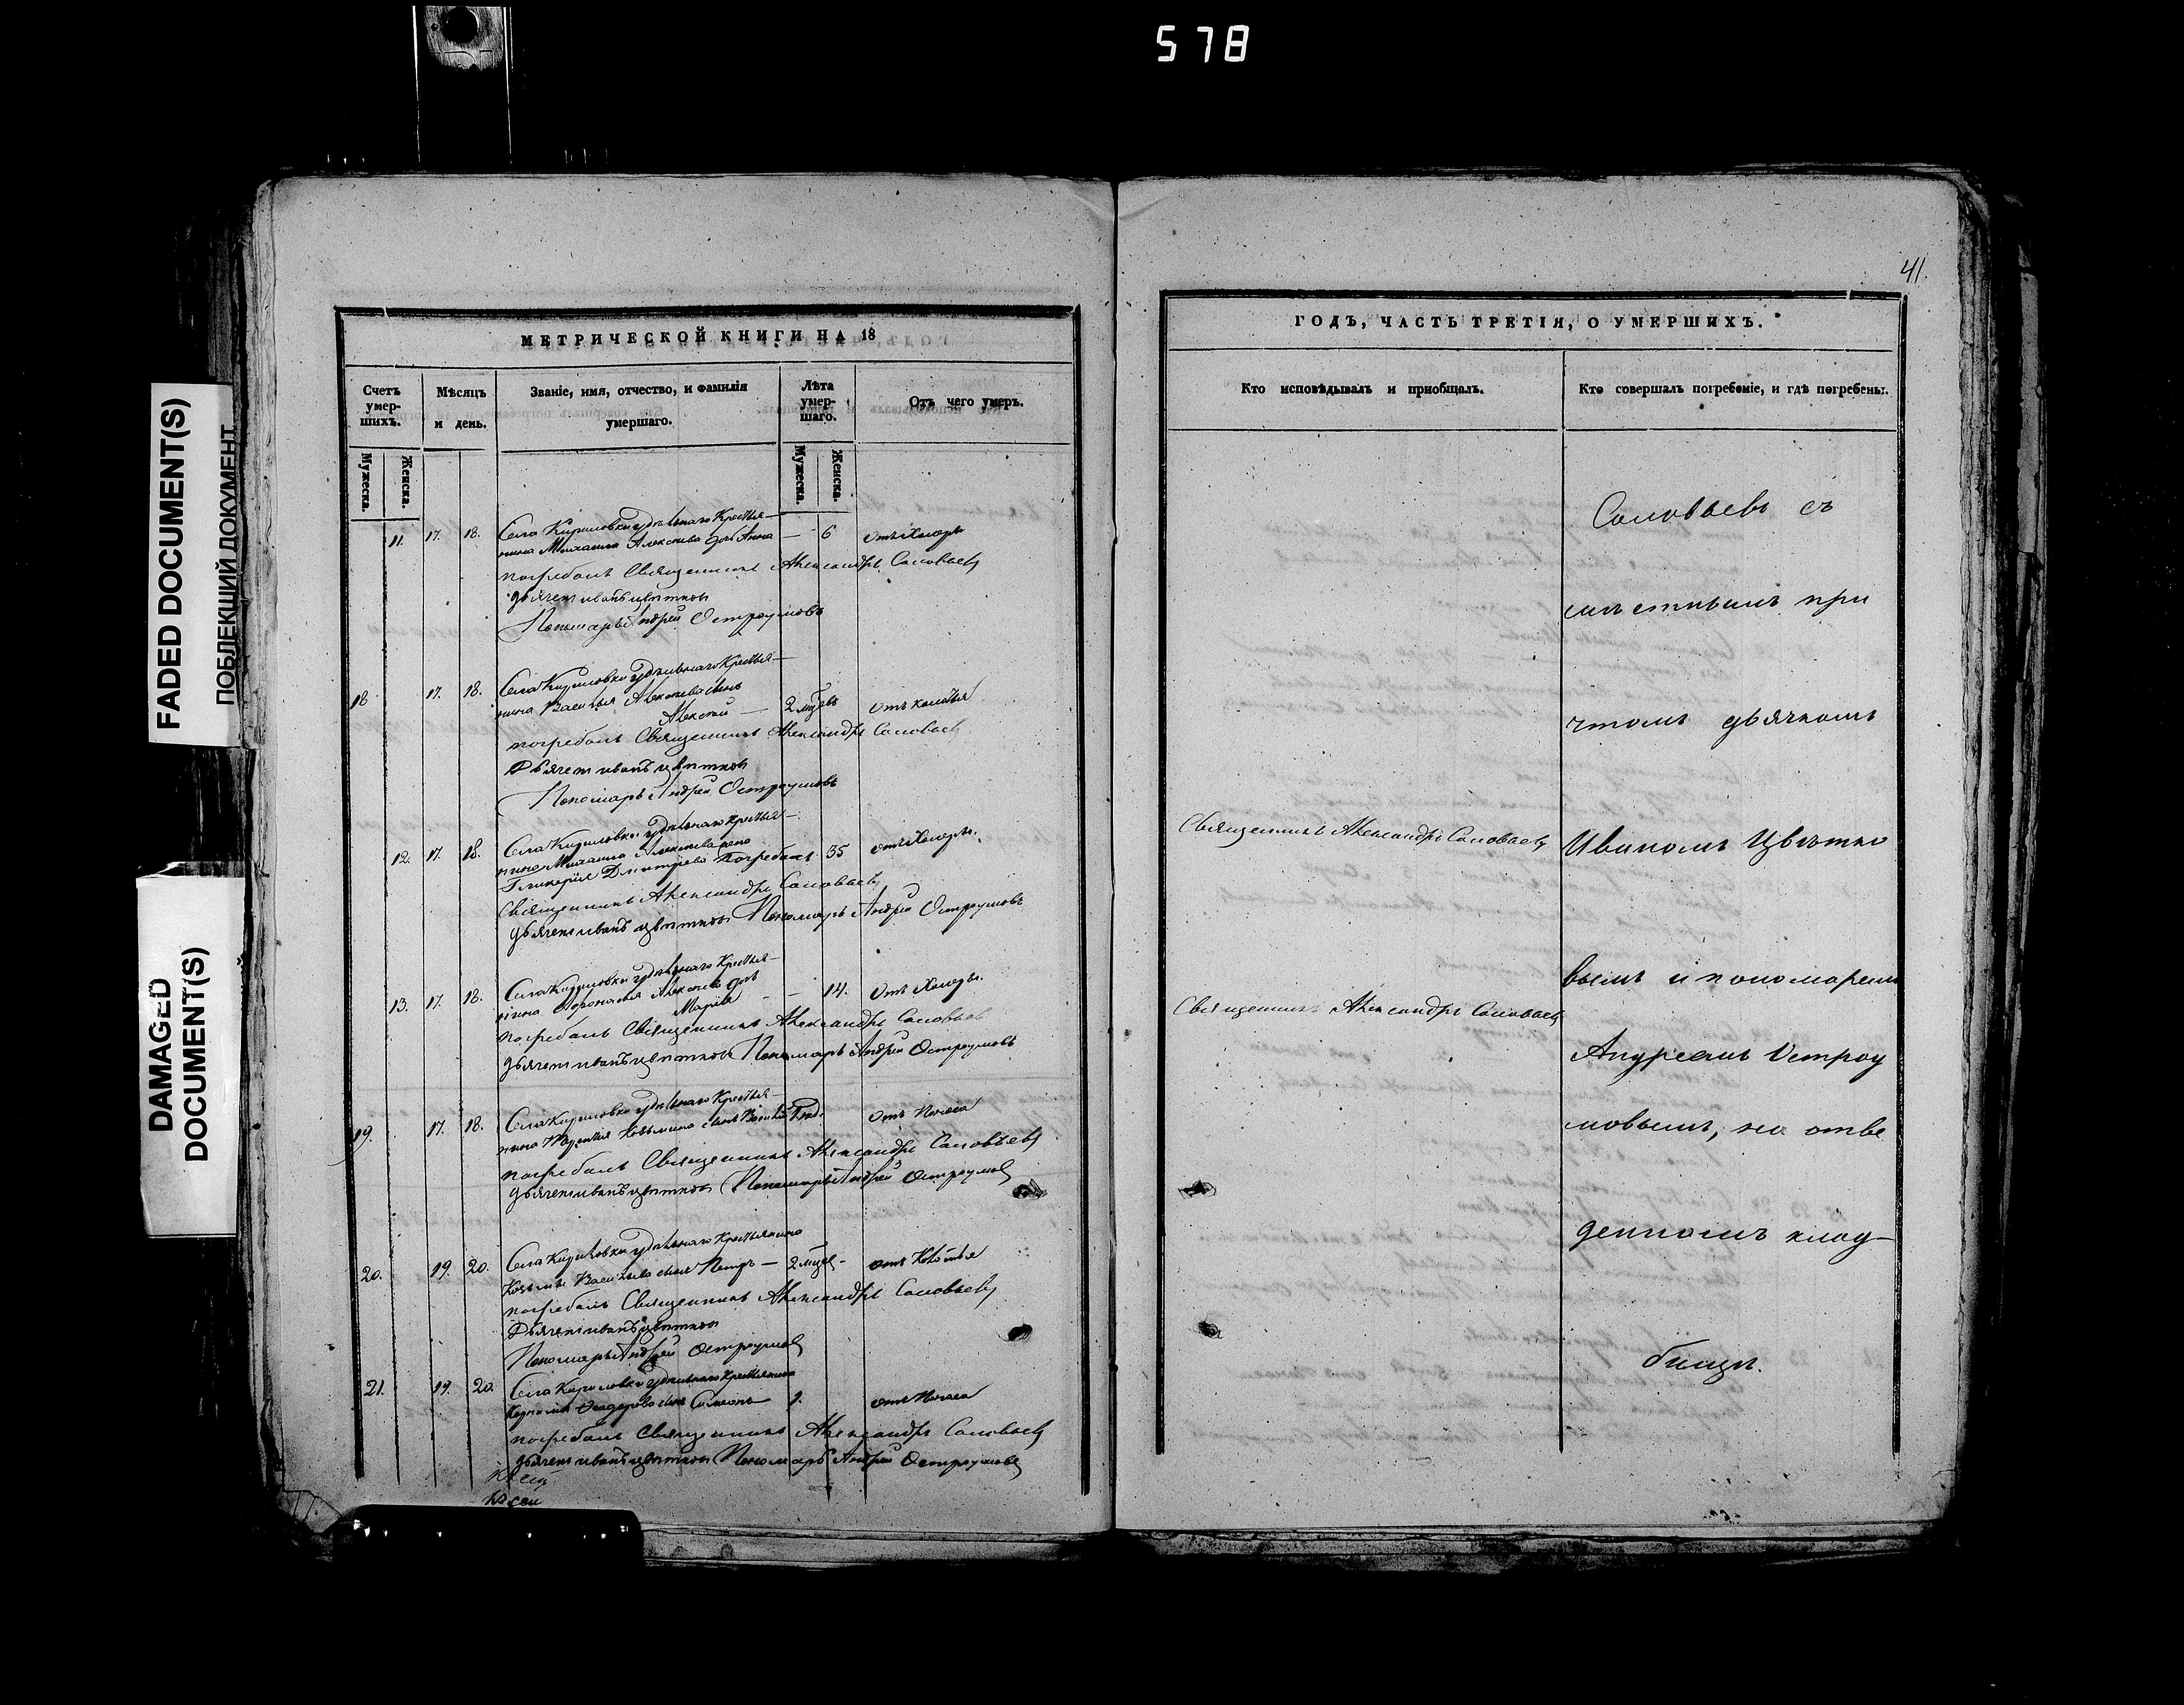 578
FADED DOCUMENT(S)
ПОБЛЕКШИЙ ДОКУМЕНТ
DAMAGED
DOCUMENT(S)
МЕТРИЧЕСКОЙ КНИГИ НА 18
Счетъ умер-шихъ.
Мѣсяцъ и день.
Званіе, имя, отчество, и фамилія умершаго.
Лѣта умер-шаго.
Отъ чего умеръ.
Мужеска.
Женска.
Мужеска.
Женска.
11. 17. 18. Села Кириловки удѣльнаго Крестья-
нина Михаила Алексѣева дочь Анна — 6 отъ Холеры
погребалъ Священникъ Александръ Соловьевъ
дьячекъ иванъ цвѣтковъ
Пономарь Андрей Остроумовъ
18 17. 18. Села Кириловки удѣльнаго Крестья-
нина Василья Алексѣева сынъ
Алексѣй — 2 мцъ отъ
погребалъ Священникъ Александръ Соловьевъ
Дьячекъ иванъ цвѣтковъ
Пономарь Андрей Остроумовъ
12. 17. 18. Села Кириловки удѣльнаго крестья-
нина Михаила Алексѣева жена
Гликерія Дмитріева Погребалъ 35 отъ Холеры.
Священникъ Александръ Соловьевъ
дьячекъ иванъ цвѣтковъ Пономарь Андрей Остроумовъ
13. 17. 18. Села Кириловки удѣльнаго Крестья-
нина Алексѣева дочь
Марія — 14. Отъ Холеры.
погребалъ Священникъ Александръ Соловьевъ
дьячекъ иванъ цвѣтковъ Пономарь Андрей Остроумовъ
19. 17. 18. Села Кириловки удѣльнаго Крестья-
нина Козьмина сынъ Василій отъ Поноса
погребалъ Священникъ Александръ Соловьевъ
дьячекъ иванъ цвѣтковъ Пономарь Андрей Остроумовъ
20. 19. 20. Села Кириловки удѣльнаго Крестьянина
Козьмы Васильева сынъ Петръ — 2 мцъ отъ
погребалъ Священникъ Александръ Соловьевъ
Дьячекъ иванъ цвѣтковъ
Пономарь Андрей Остроумовъ
21. 19. 20. Села Кириловки удѣльнаго Крестьянина
Федорова сынъ Симеонъ 1. отъ Поноса
погребалъ Священникъ Александръ Соловьевъ
дьячекъ иванъ цвѣтковъ Пономарь Андрей Остроумовъ
41.
ГОДЪ, ЧАСТЬ ТРЕТІЯ, О УМЕРШИХЪ.
Кто исповѣдывалъ и приобщалъ.
Кто совершалъ погребеніе, и гдѣ погребены.
Соловьевъ съ
мѣстнымъ при
чтомъ дьячкомъ
Священникъ Александръ Соловьевъ
Иваномъ Цвѣтко
вымъ и пономаремъ
Священникъ Александръ Соловьевъ
Андреемъ Остроу
мовымъ, на отве
денномъ клад-
бищѣ.